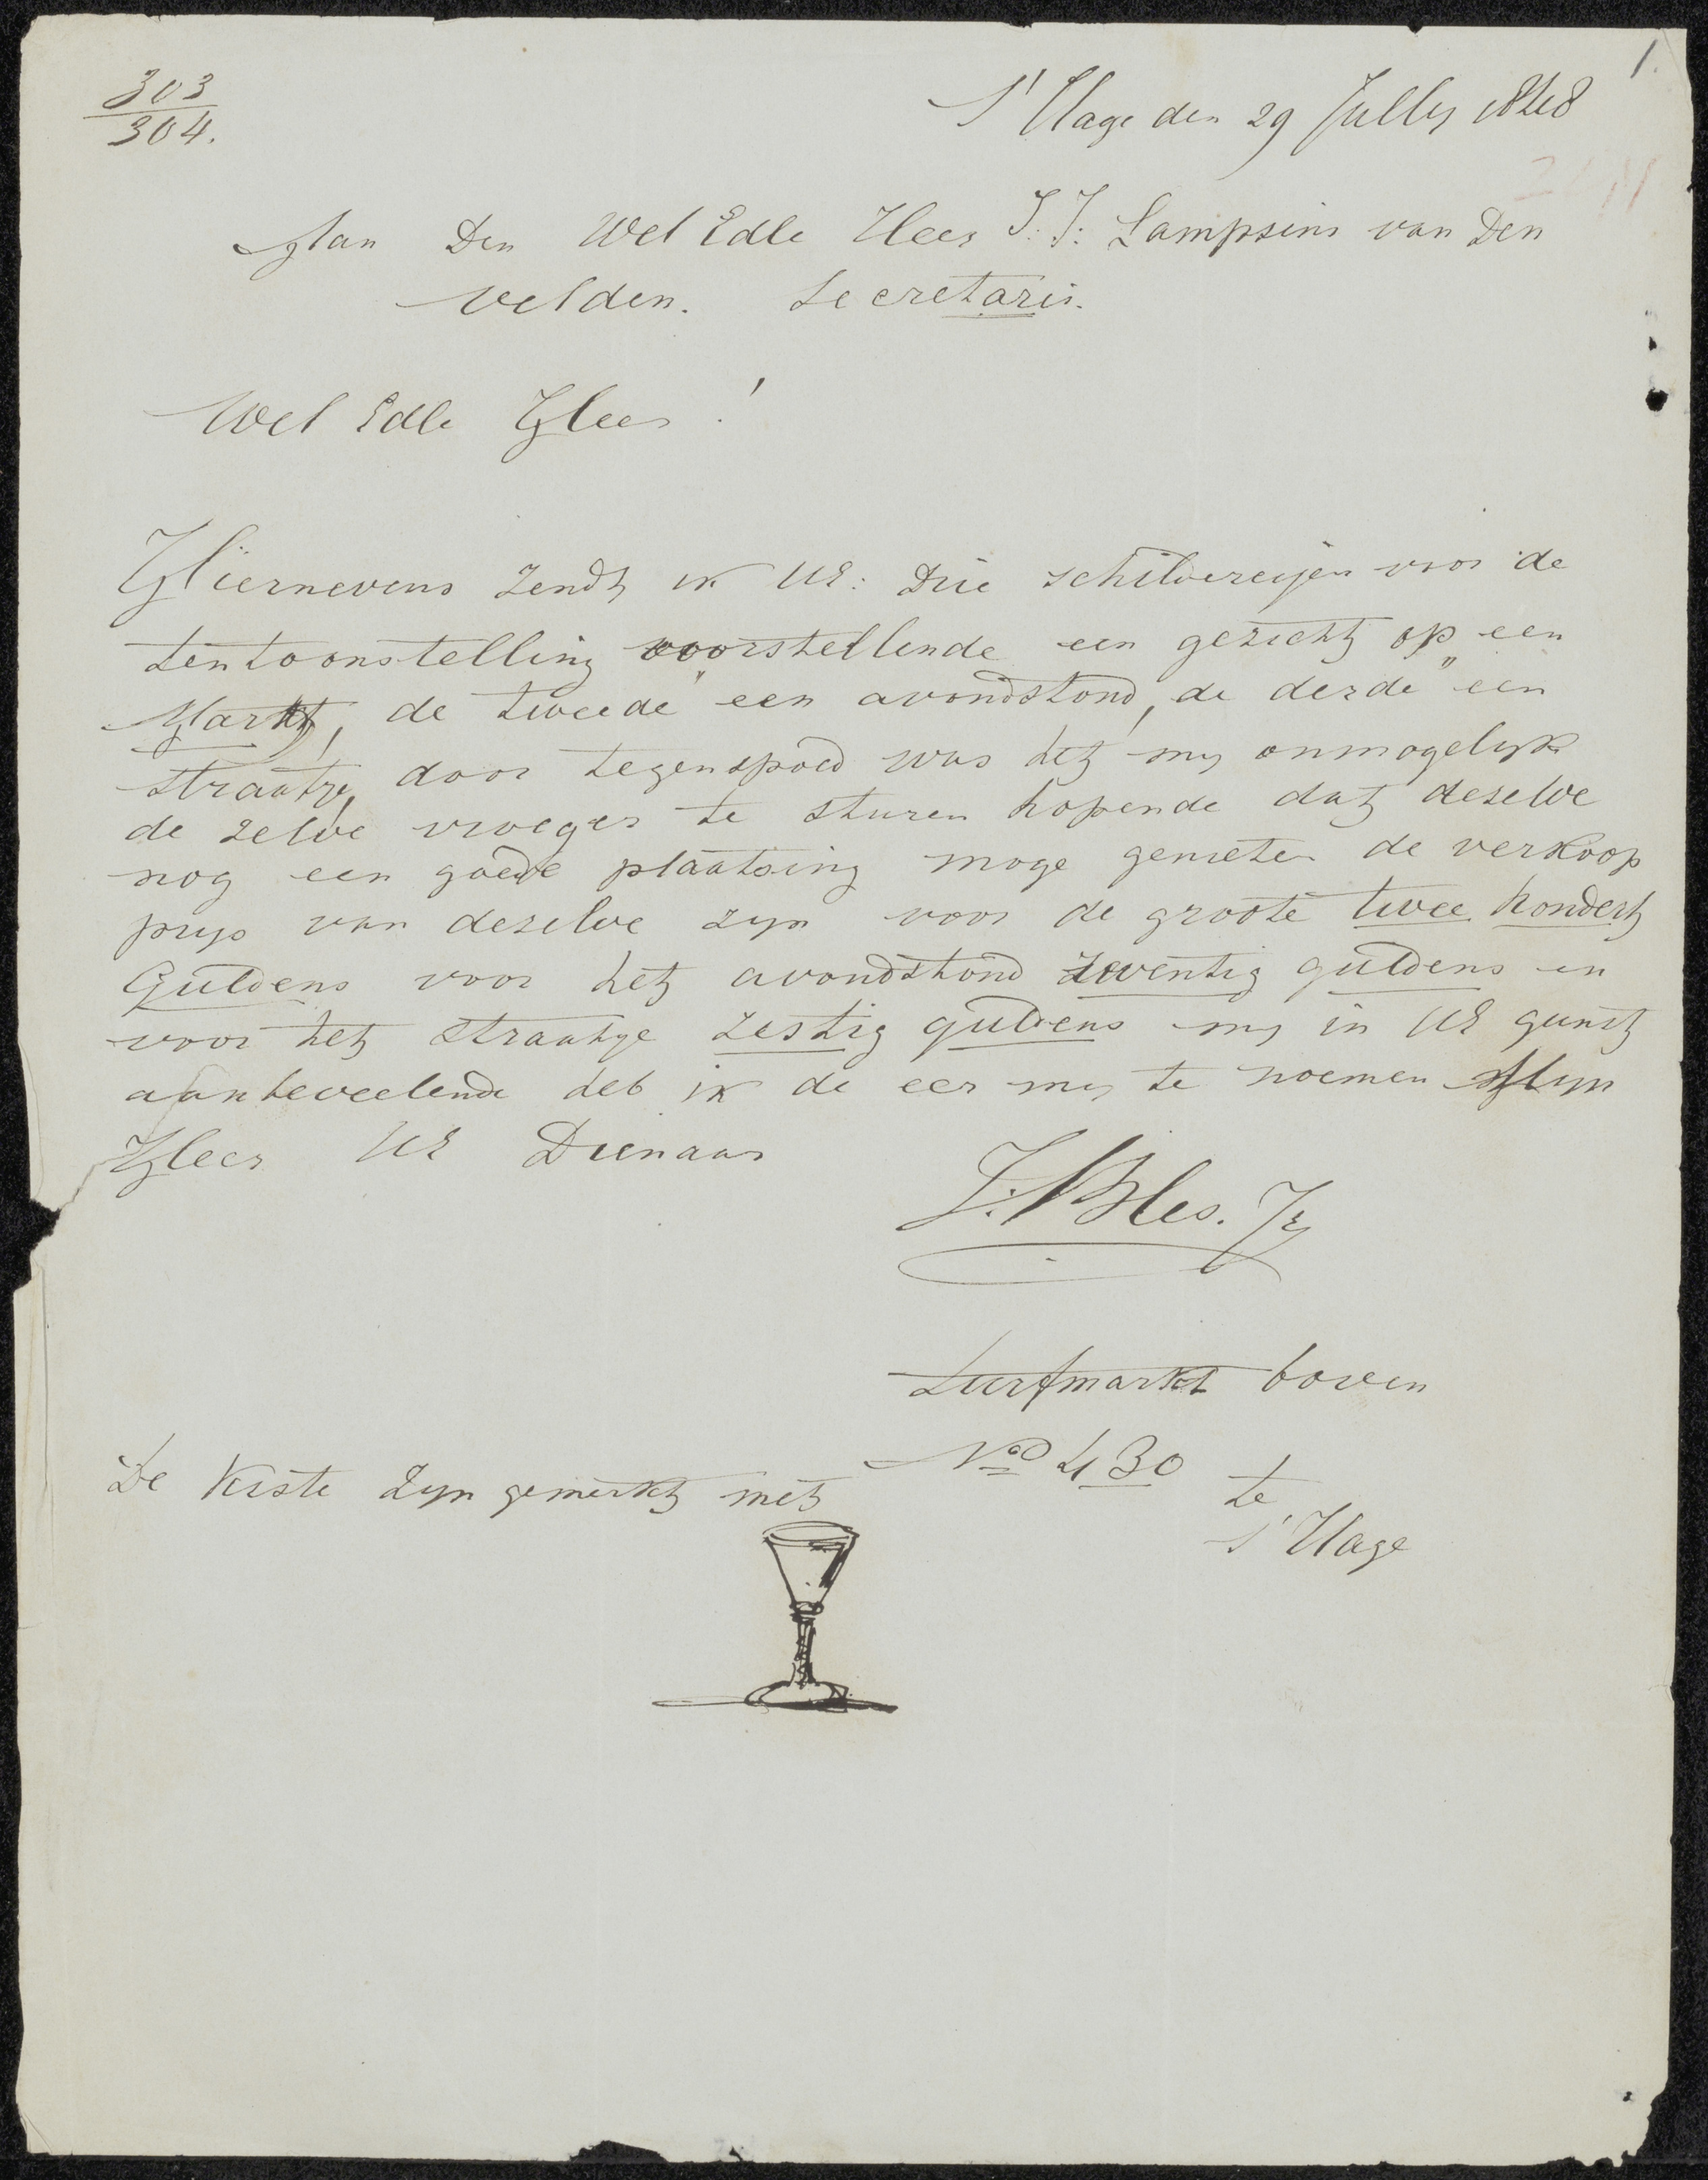 1.
303
304.
S' Hage den 29 Jully 1848
Aan Den Wel Edle Heer J: J: Lampsins van Den
Velden. Secretaris.
Wel Edle Heer !
Hiernevens zendt ik UE: Drie schildereijen voor de
tentoonstelling voorstellende een gezicht op een
Markt, de tweede "een avondstond, de derde "een
straatje, door tegenspoed was het my onmogelyk
de zelve vroeger te sturen hopende dat deselve
nog een goede plaatsing moge genieten de verkoop
prys van deselve zyn voor de groote twee hondert
Guldens voor het avondstond zeventig guldens en
voor het straatye zestig guldens my in UE gunst
aanbeveelende heb ik de eer my te noemen Myn
Heer UE Dienaar
J. Bles. Jz
Turfmarkt boven
No 430 te
S' Hage
De kiste zyn gemerkt met